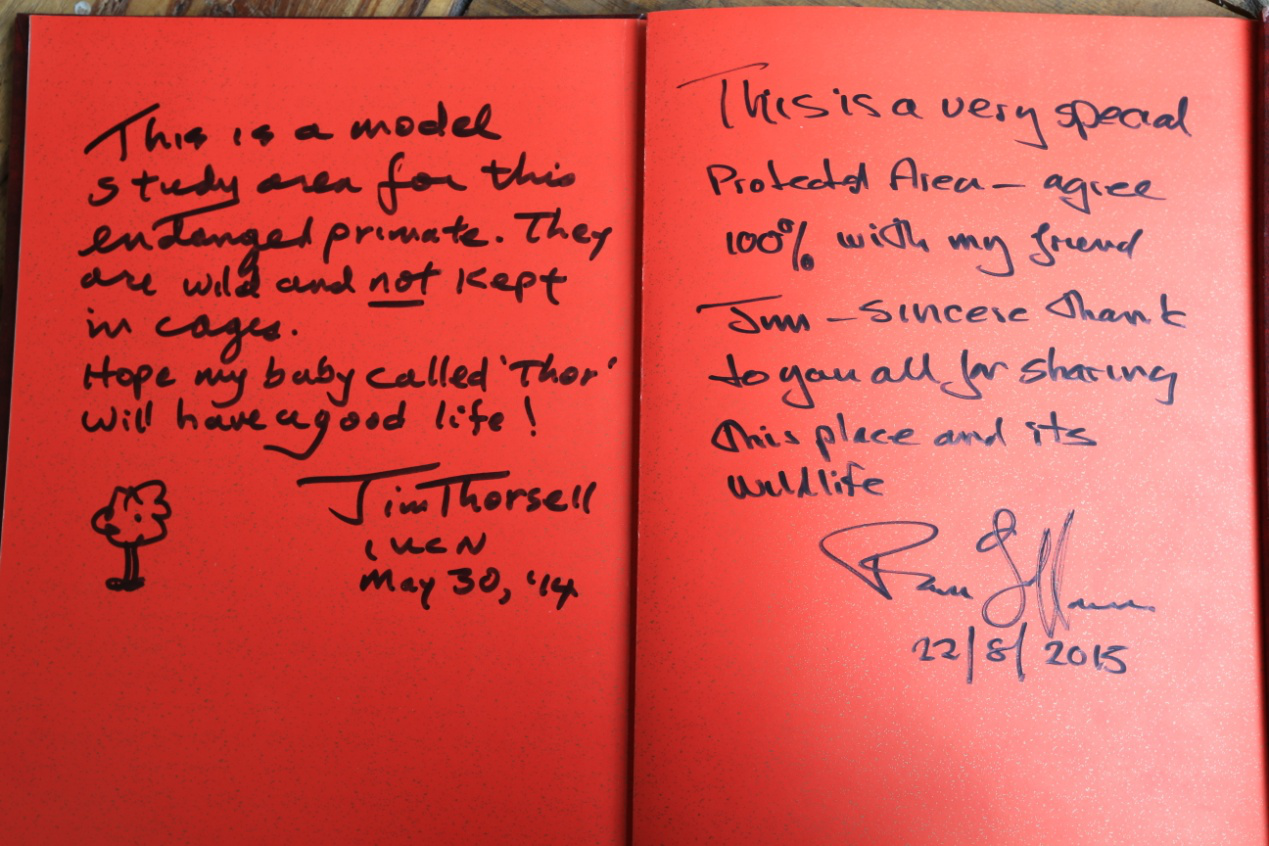 This is a model
study area for this
endanged primate. They
are wild and not kept
in cages.
Hope my baby called 'Thor'
will have a good life!
Jim Thorsell
IUCN
May 30, '14
This is a very special
Protected Area – agree
100% with my friend
Jim – sincere thank
to you all for sharing
this place and its
wildlife
22/8/2015